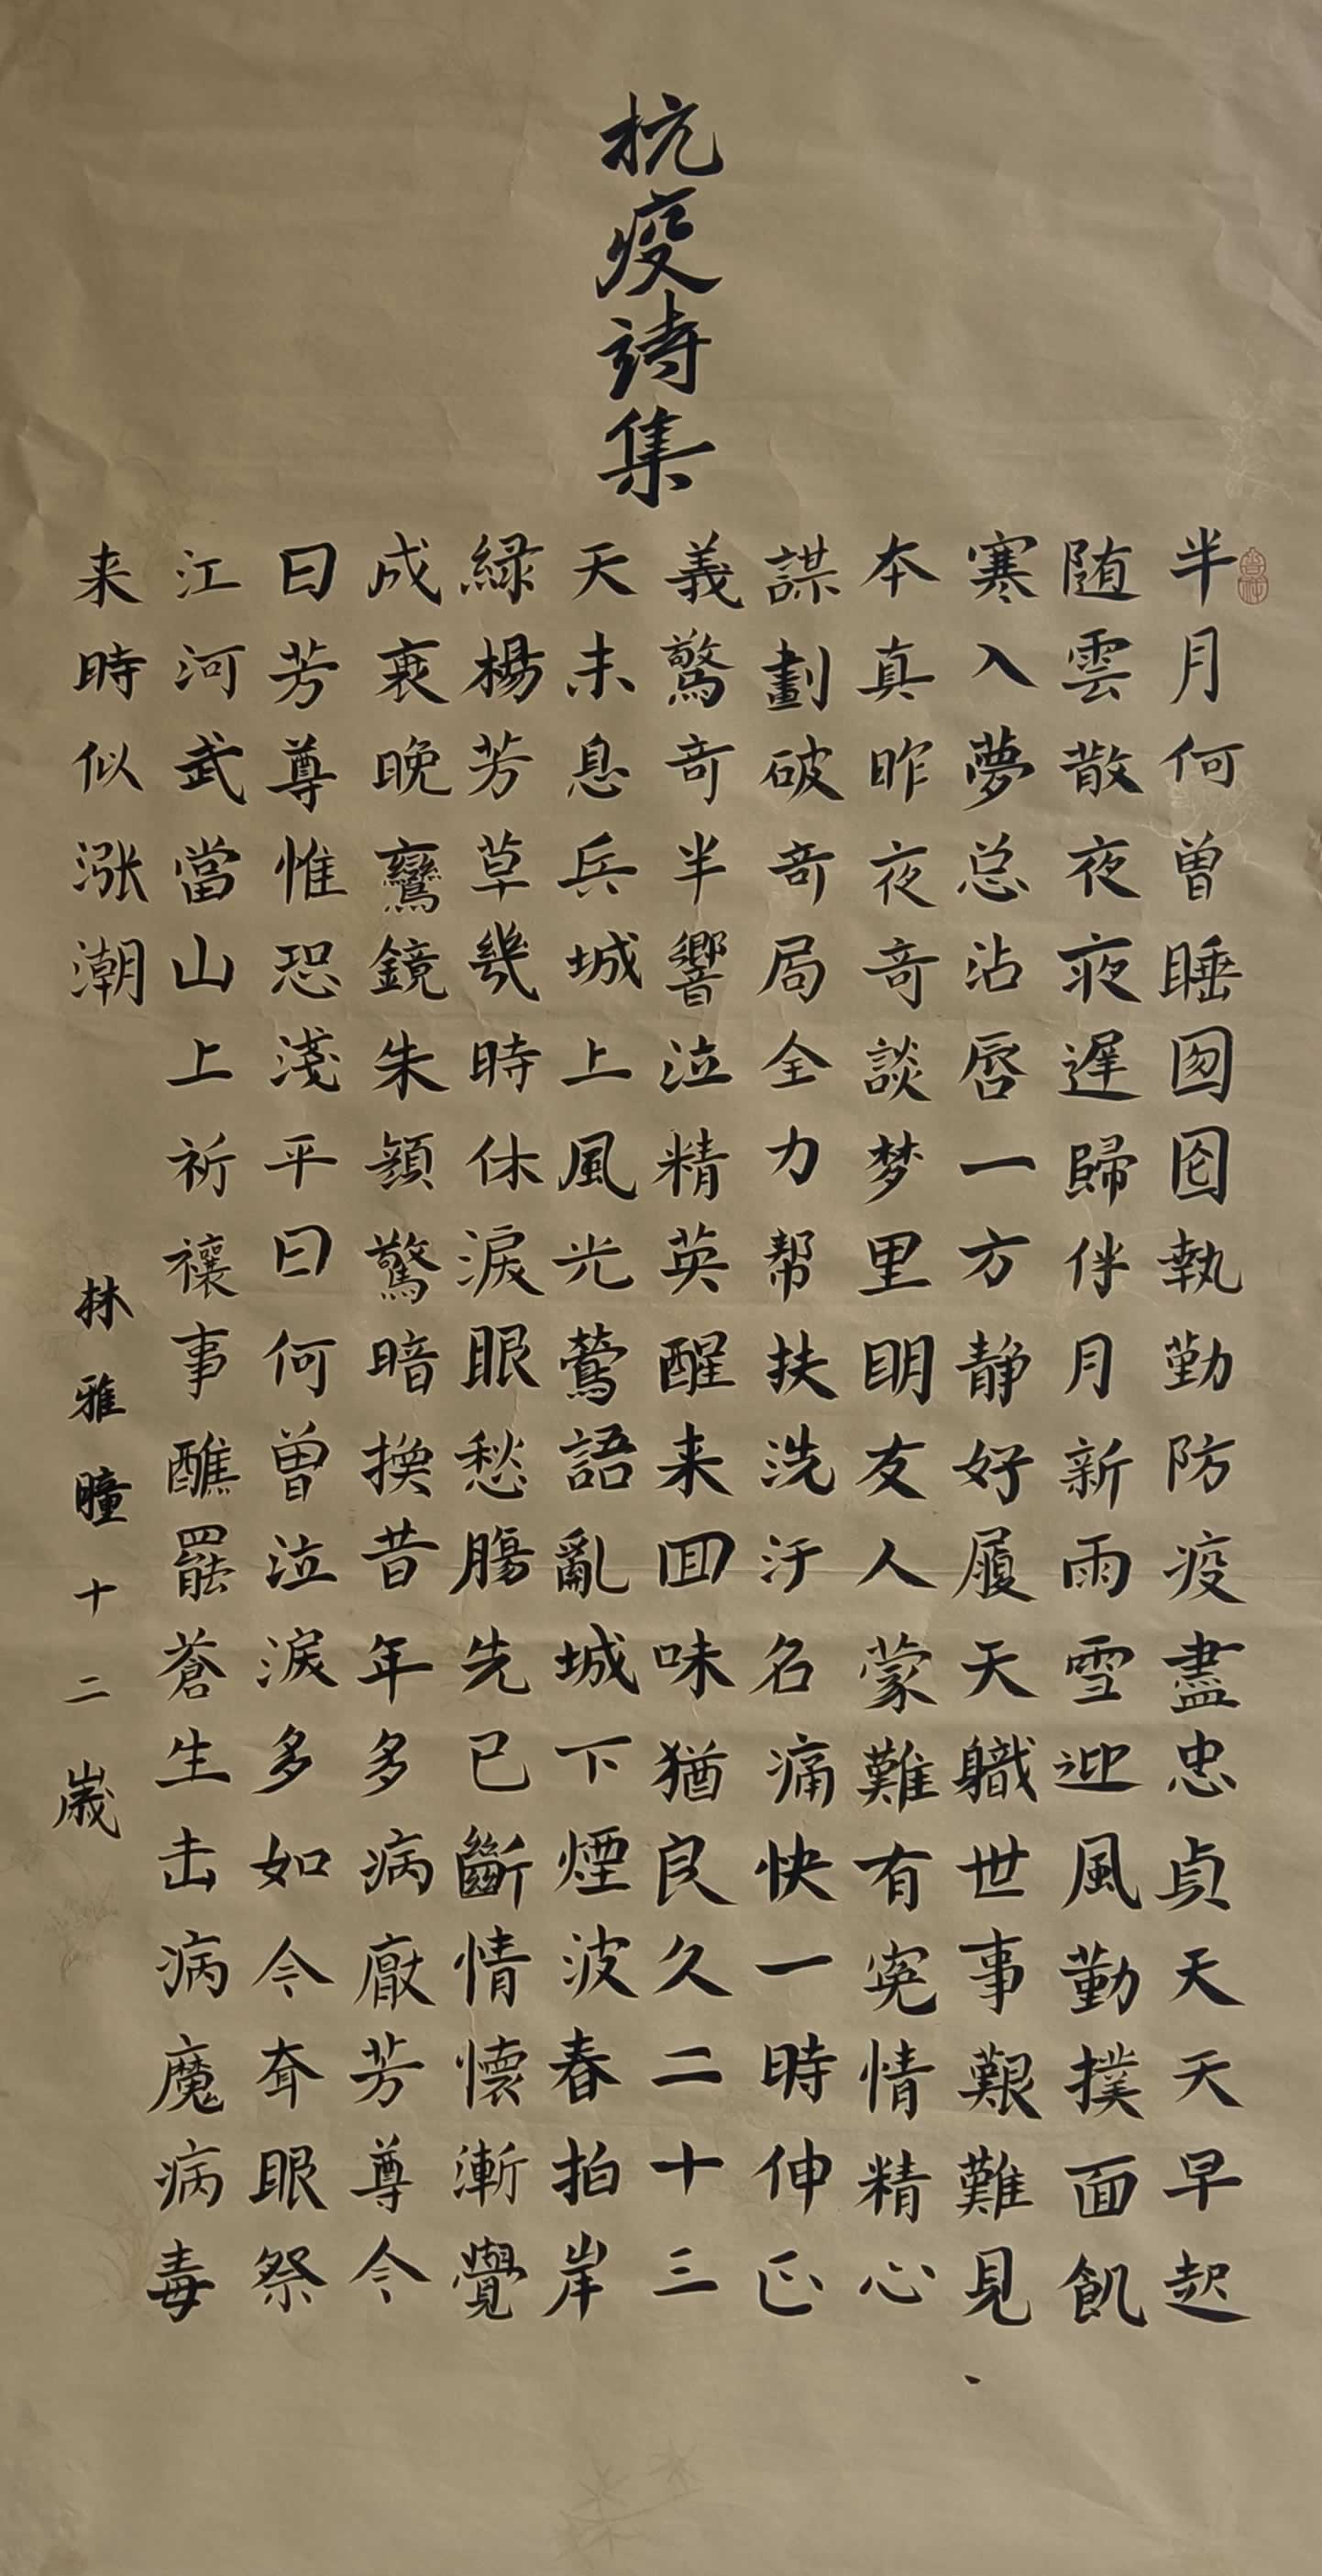 抗疫詩集
半月何曾睡囫囵執勤防疫盡忠貞天天天早起
随雲散夜夜遲歸伴月新雨雪迎風勤撲面飢
寒入夢总沾唇一方静好履天職世事艱難見
本真昨夜奇談梦里明友人蒙難有冤情精心
謀劃破奇局全力帮扶洗汙名痛快一時伸正
義驚奇半響泣精英醒来回味猶良久二十三
天未息兵城上風光鶯語亂城下煙波春拍岸
緑楊芳草幾時休淚眼愁腸先已斷情懷漸覺
成衰晚鸞鏡朱顔驚暗換昔年多病厭芳尊今
日芳尊惟恐淺平日何曾泣淚多如今耷眼祭
江河武當山上祈禳事醮罷蒼生击病魔病毒
来時似涨潮
林雅瞳十二歲